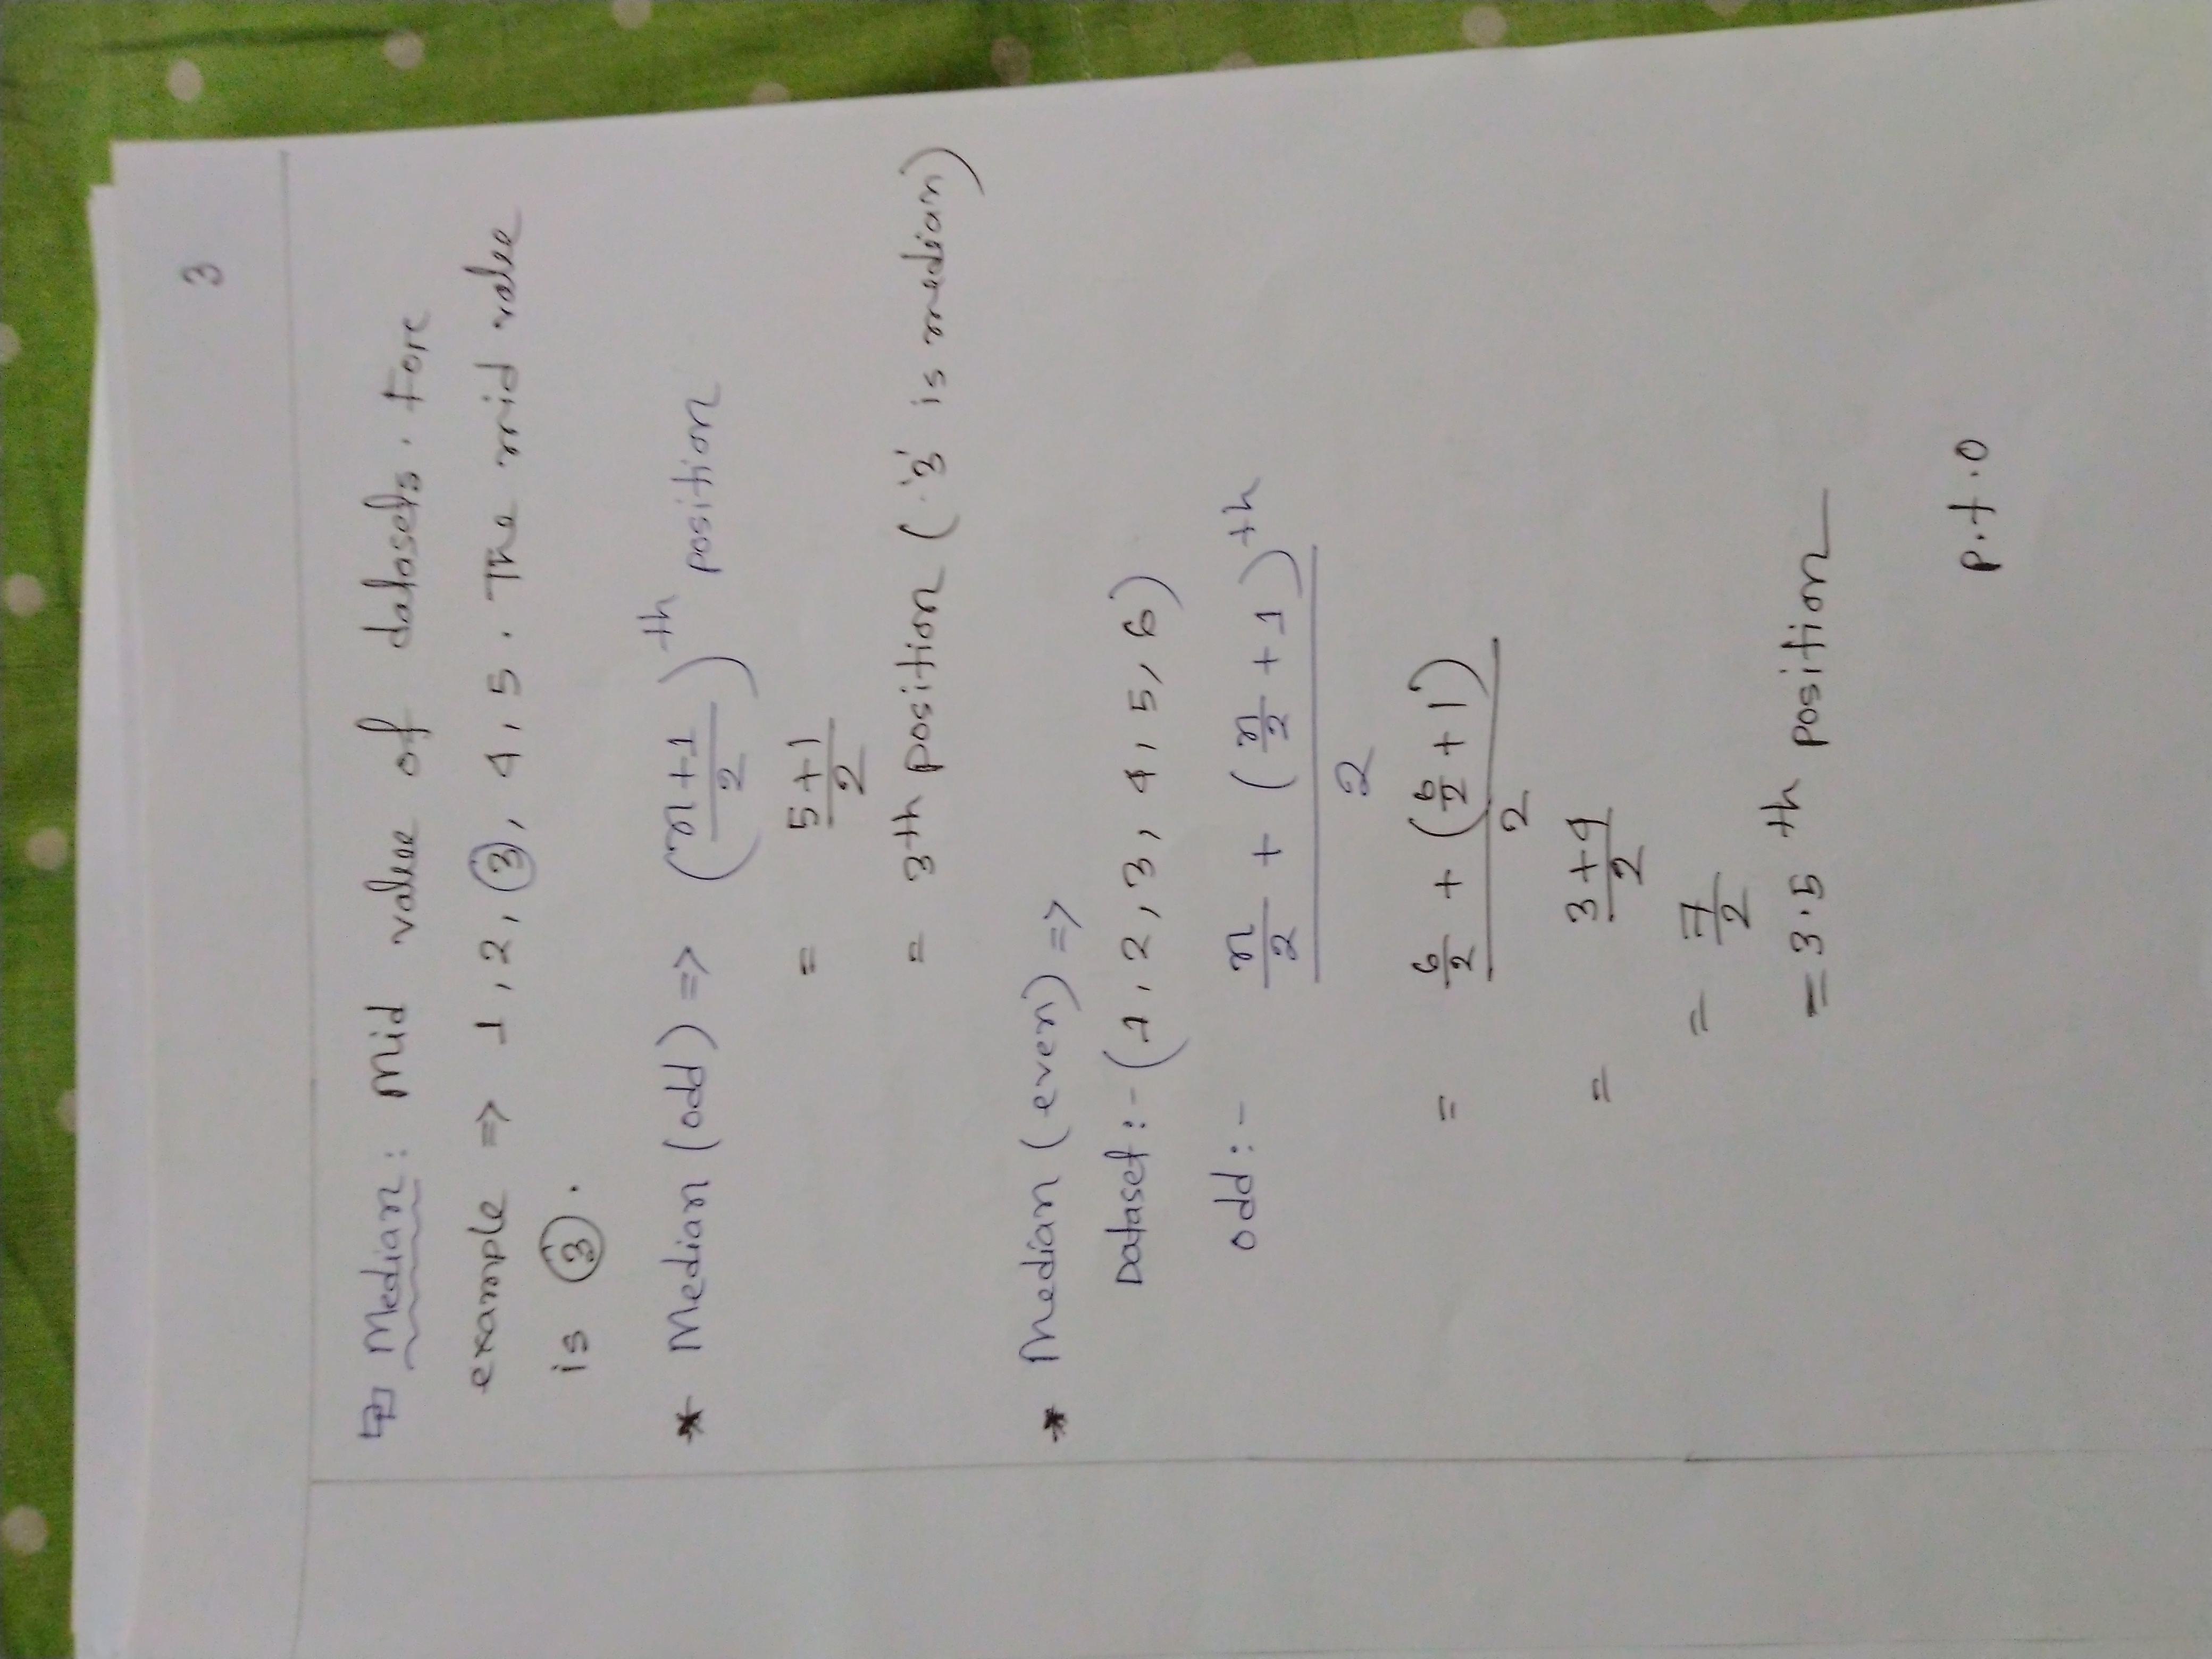 3
Median : Mid value of datasets. Fore
example ⇒ 1, 2, 3, 4, 5. The mid value
is 3.
* Median (odd) ⇒ (n+1/2)th position
= 5+1/2
= 3th position ('3' is median)
* Median (even) ⇒
Dataset :- (1, 2, 3, 4, 5, 6)
odd :- n/2 + (n/2 + 1)th / 2
= 6/2 + (6/2 + 1) / 2
= 3+4/2
= 7/2
= 3.5 th position
P.t.o